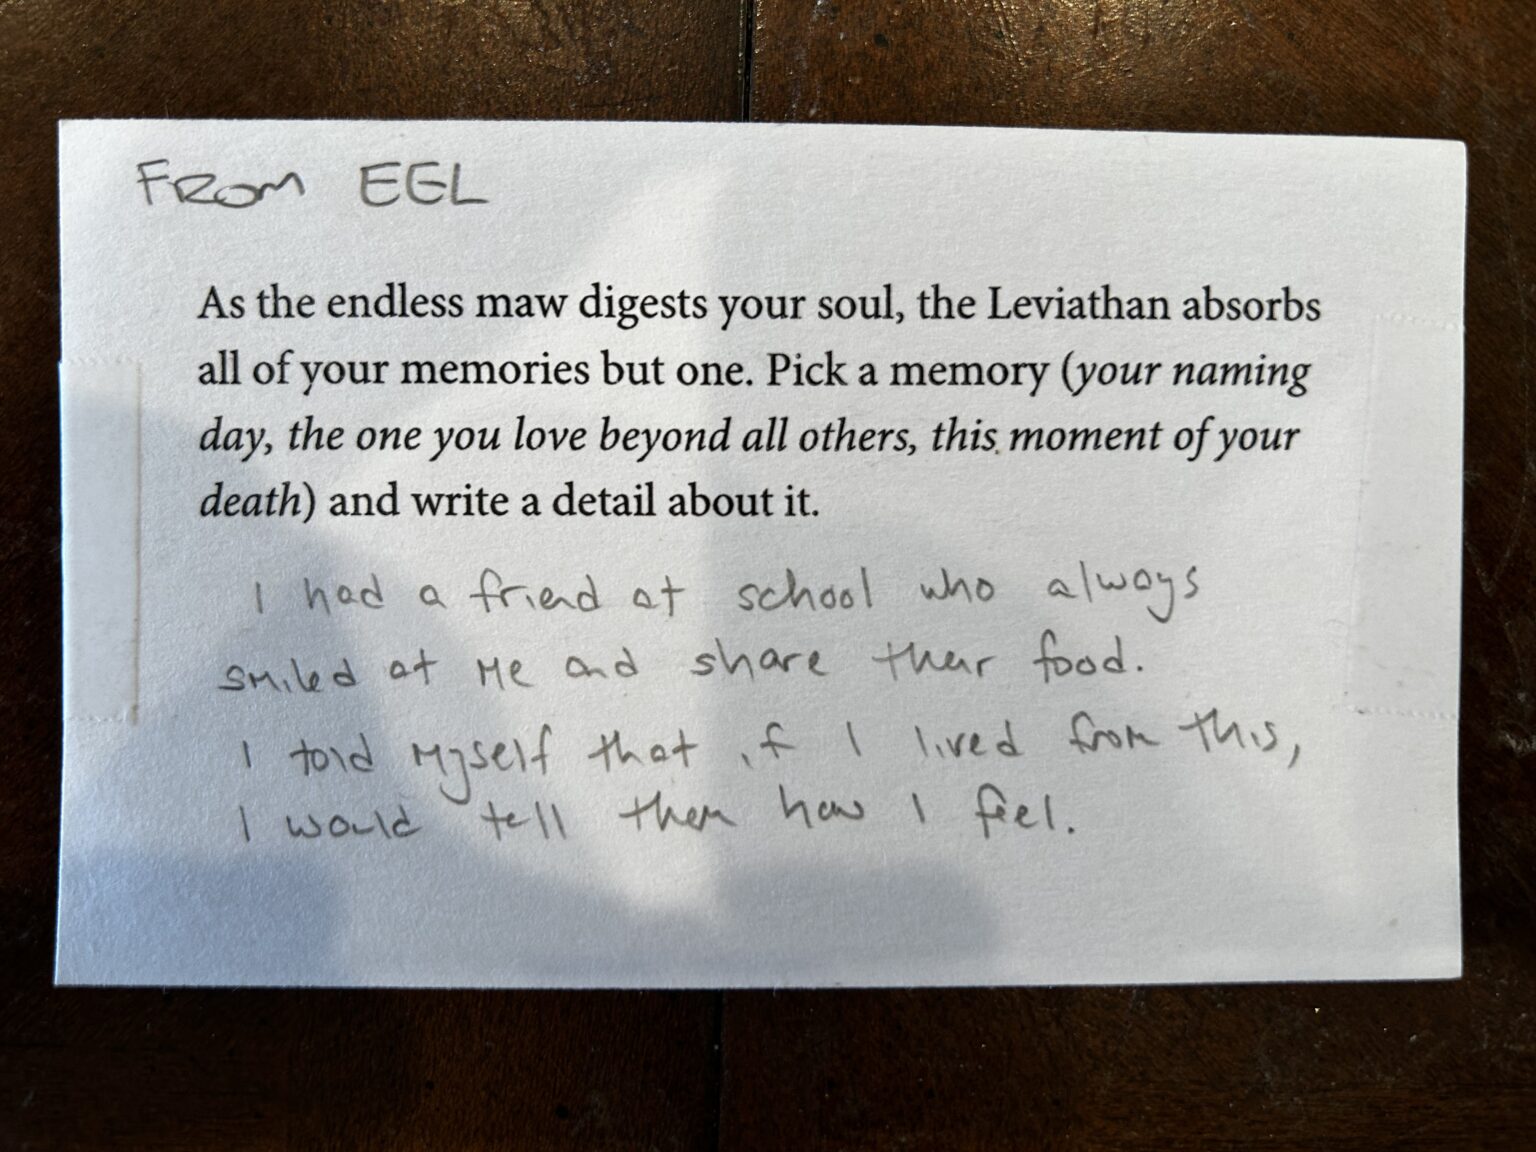 From EGL
As the endless maw digests your soul, the Leviathan absorbs
all of your memories but one. Pick a memory (your naming
day, the one you love beyond all others, this moment of your
death) and write a detail about it.
I had a friend at school who always
smiled at me and share their food.
I told myself that if I lived from this,
I would tell them how I feel.